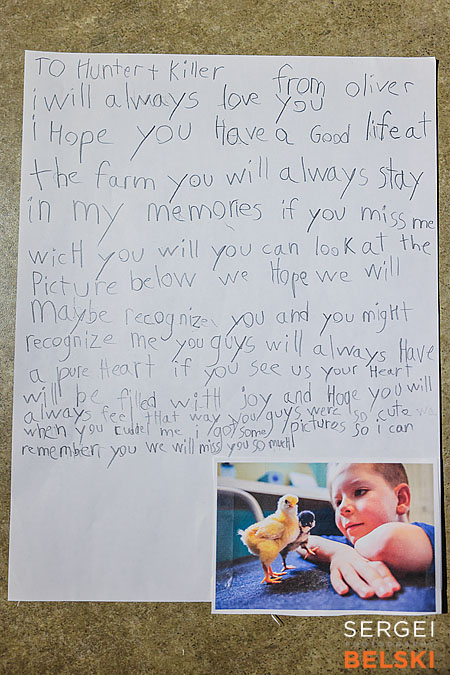 TO Hunter + Killer from oliver
i will always love you
i Hope you Have a Good life at
the farm you will always stay
in my memories if you miss me
wicH you will you can look at the
Picture below we Hope we will
Maybe recognize you and you might
recognize me you guys will always Have
a pure Heart if you see us your Heart
will be filled with joy and Hope you will
always feel that way you guys were so cute
when you cuddel me i got some pictures so i can
remember you we will miss you so much!
SERGEI
BELSKI